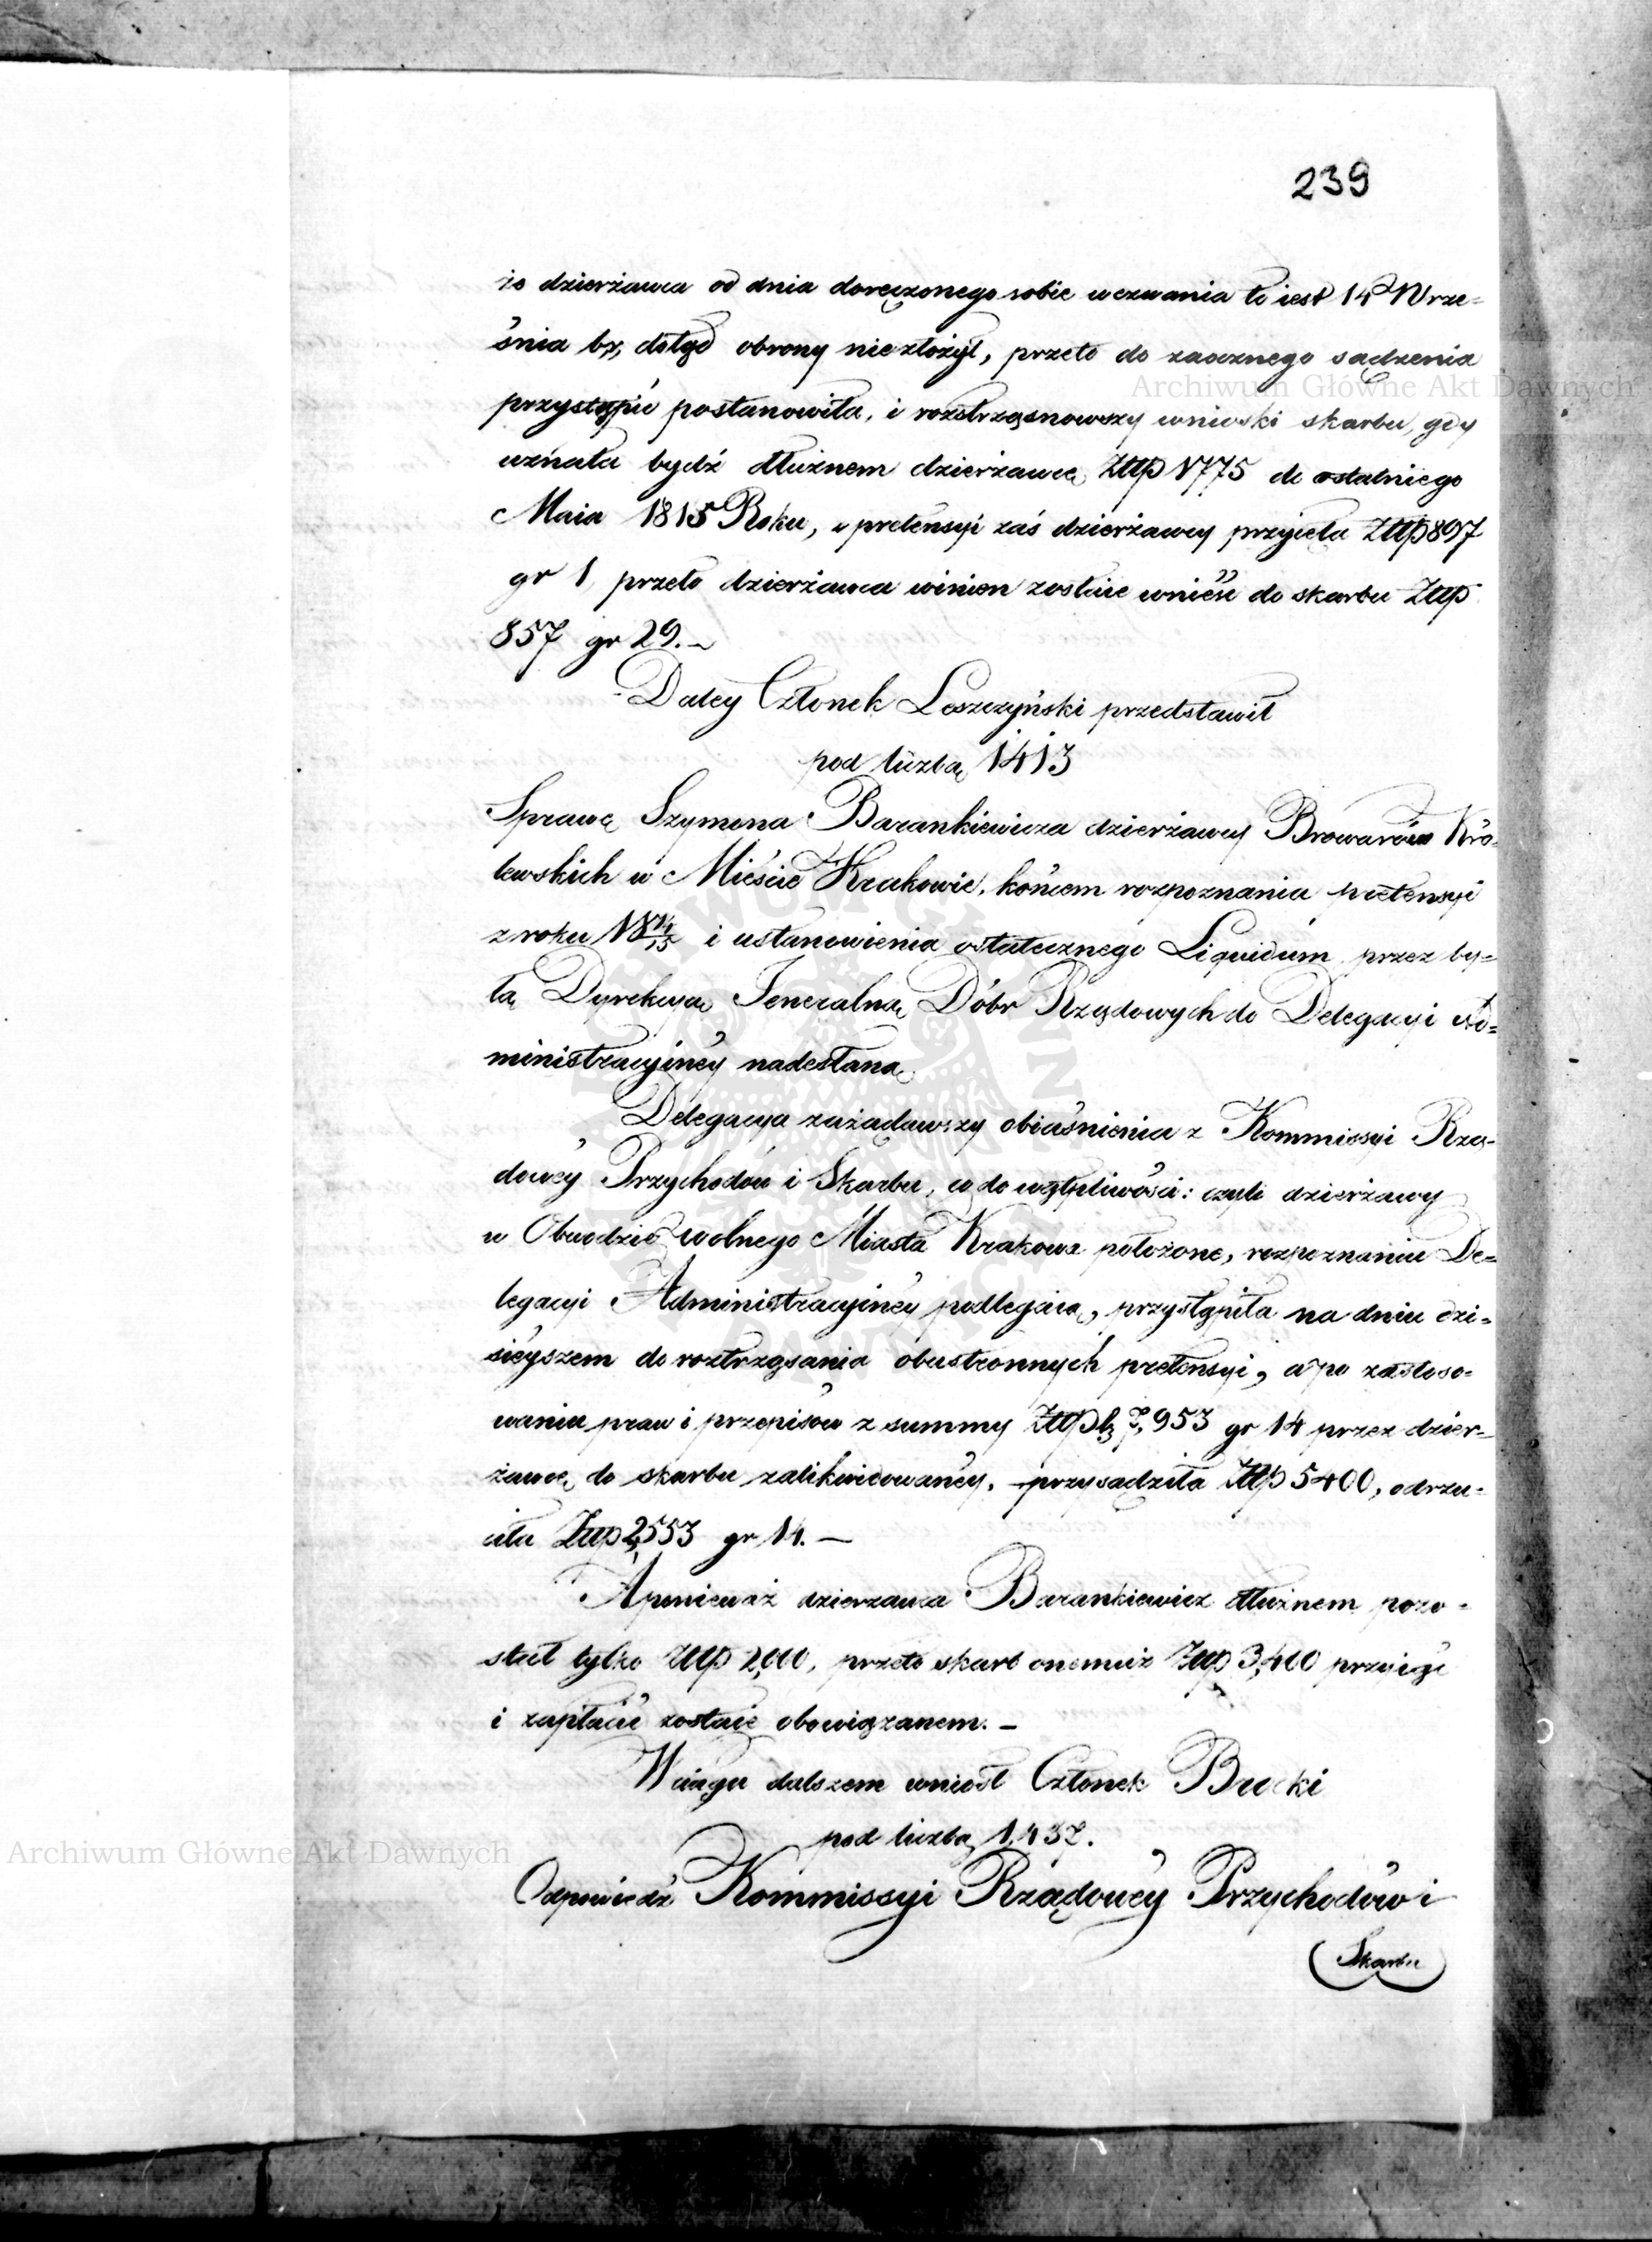 239
że dzierżawca od dnia doręczonego sobie wezwania to iest 14 Wrze=
śnia br, dotąd obrony niezłożył, przeto do zaocznego sądzenia
przystąpić postanowiła, i roztrząsnowszy wnioski skarbu, gdy
uznała bydź dłużnem dzierżawcę Złlp 1775 do ostatniego
Maia 1815 Roku, pretensyi zaś dzierżawcy przyięła Złlp 897
gr 1 przeto dzierżawca winien zostaie wnieść do skarbu Złlp
857 gr 29.–
Daley Członek Leszczyński przedstawił
pod liczbą 1413
Sprawę Szymona Barankiewicza dzierżawcy Browarów Kró=
lewskich w Mieście Krakowie, końcem rozpoznania pretensyi
z roku 18 14/15 i ustanowienia ostatecznego Liquidum przez by=
łą Dyrekcyą Jeneralną Dóbr Rządowych do Delegacyi Ad=
ministracyiney nadesłaną
Delegacya zażądawszy obiaśnienia z Kommissyi Rzą=
dowey Przychodów i Skarbu, co do wątpliwości: czyli dzierżawy
w Obwodzie wolnego Miasta Krakowa położone, rozpoznaniu De=
legacyi Administracyiney podlegaią, przystąpiła na dniu dzi=
sieyszem do roztrząsania obustronnych pretensyi, a po zastoso=
waniu praw i przepisów z summy Złlp 7,953 gr 14 przez dzier=
żawcę do skarbu zalikwidowaney, przysądziła Złlp 5400, odrzu=
ciła Złlp 2,553 gr 14.–
A ponieważ dzierżawca Barankiewicz dłużnem pozo=
stał tylko Złlp 2,000, przeto skarb onemuż Złlp 3,400 przyiąć
i zapłacić zostaie obowiązanem.–
W ciągu dalszem wniósł Członek Brocki
pod liczbą 1,437.
Odpowiedź Kommissyi Rządowey Przychodów i
Skarbu
Archiwum Główne Akt Dawnych
Archiwum Główne Akt Dawnych